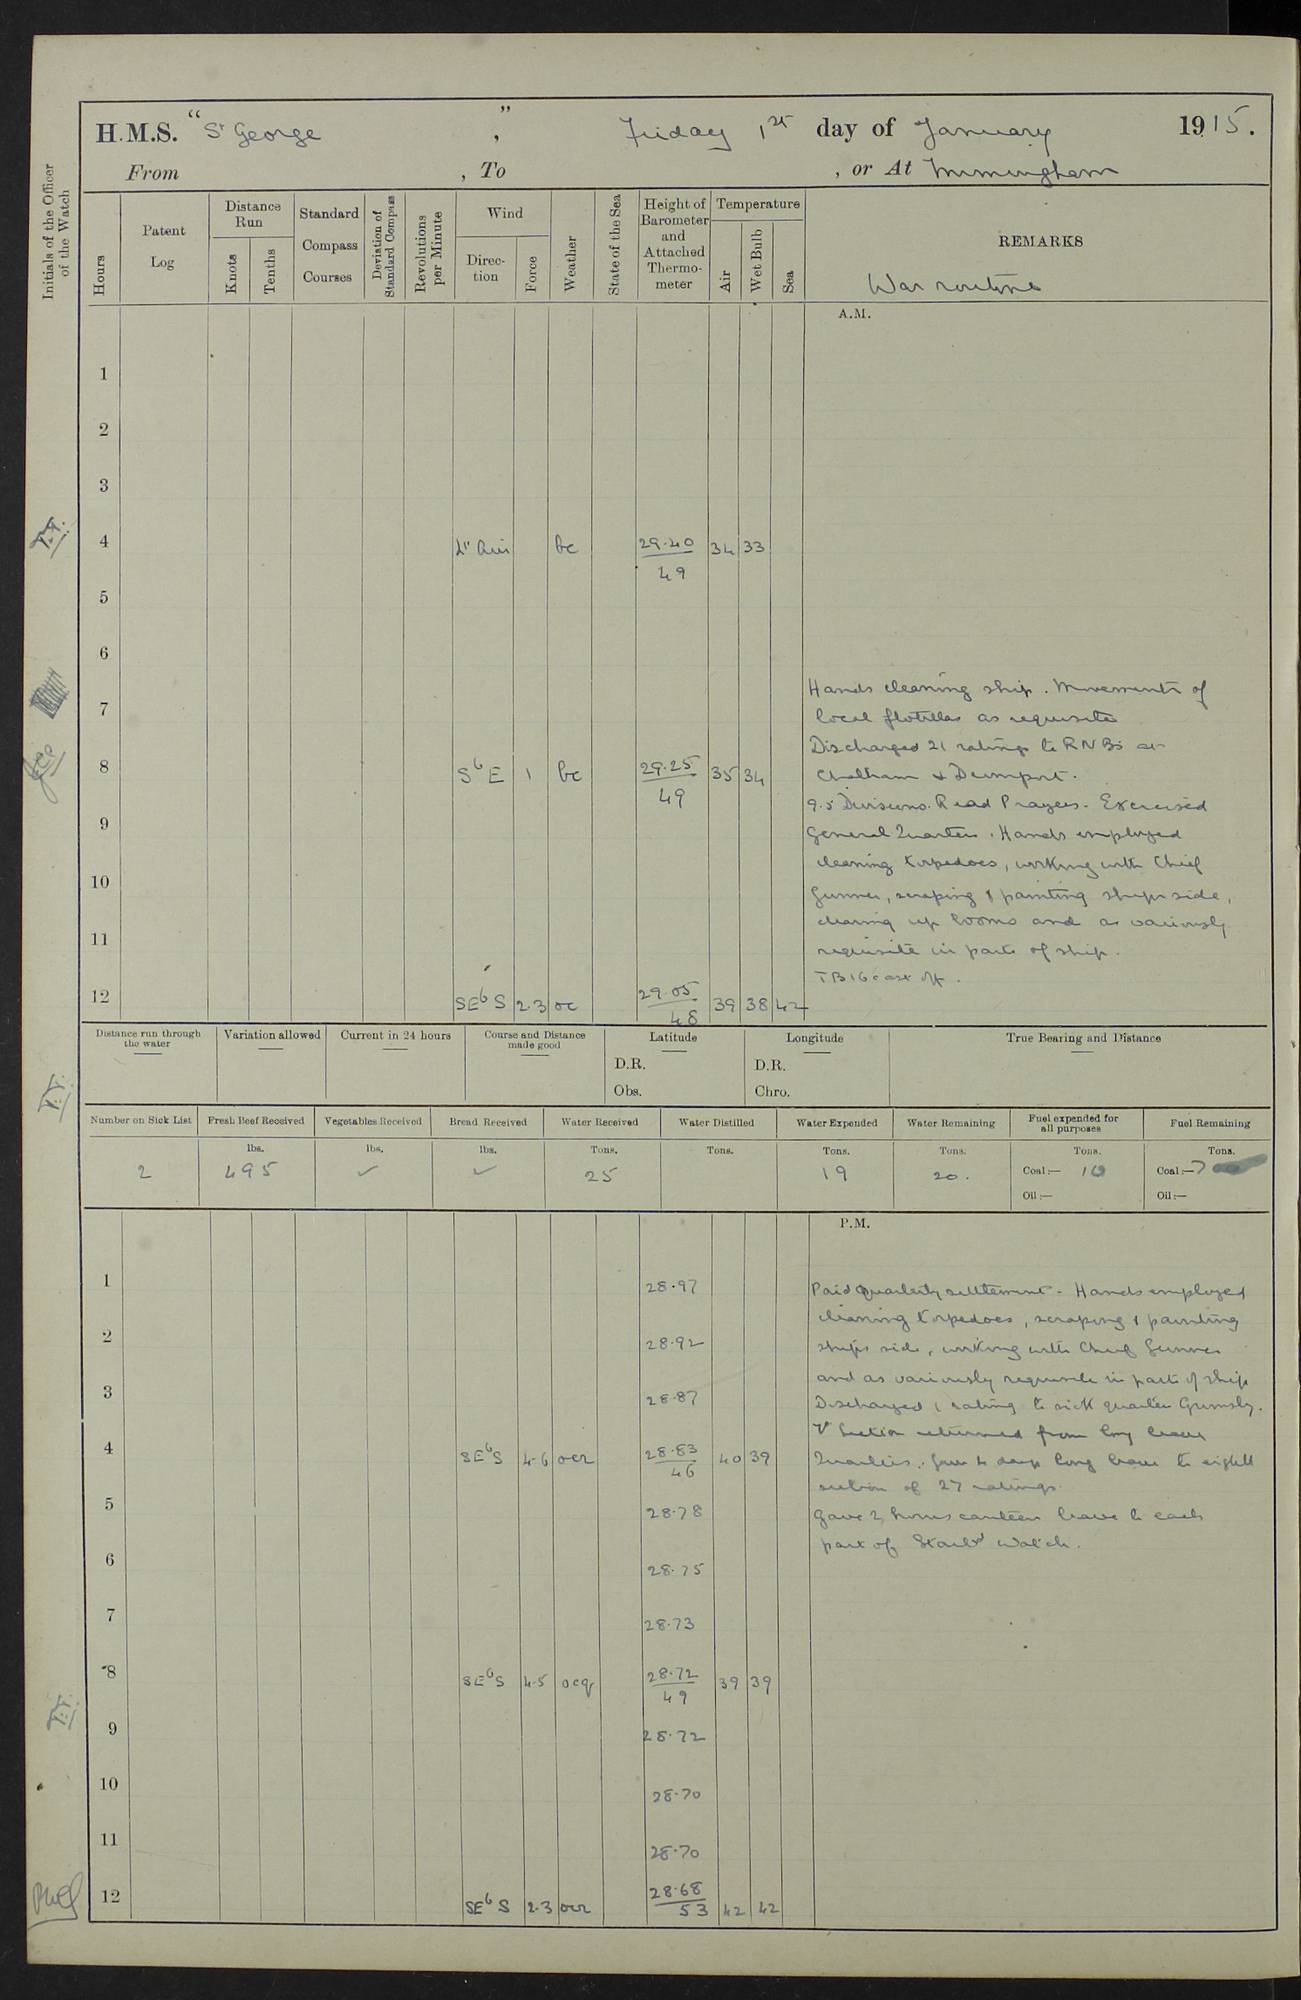 H.M.S. "St George", Friday 1st day of January 1915.
From , To , or At Immingham
Initials of the Officer of the Watch
Hours
Patent Log
Distance Run
Knots
Tenths
Standard Compass Courses
Deviation of Standard Compass
Revolutions per Minute
Wind
Direction
Force
Weather
State of the Sea
Height of Barometer and Attached Thermometer
Temperature
Air
Wet Bulb
Sea
REMARKS
War routine
A.M.
1
2
3
4 Lt Air bc 29.40 34 33
49
5
6
Hands cleaning ship. Movements of
7
local flotillas as requisite
Discharged 21 ratings to RNBs at
8 SbE 1 bc 29.25 35 34
49
Chatham & Devonport.
9.5 Divisions. Read Prayers. Exercised
9
General Quarters. Hands employed
cleaning torpedoes, working with Chief
10
Gunner, scraping & painting ships side,
clearing up booms and as variously
11
requisite in parts of ship.
TB 16 cast off.
12 SEbS 2.3 oc 29.05 39 38 42
48
Distance run through the water
Variation allowed
Current in 24 hours
Course and Distance made good
Latitude
D.R.
Obs.
Longitude
D.R.
Chro.
True Bearing and Distance
Number on Sick List
Fresh Beef Received
Vegetables Received
Bread Received
Water Received
Water Distilled
Water Expended
Water Remaining
Fuel expended for all purposes
Fuel Remaining
lbs. lbs. lbs. Tons. Tons. Tons. Tons. Tons. Tons.
2 495 ✓ ✓ 25 19 20. Coal:— 10 Coal:— 7
Oil:— Oil:—
P.M.
1 28.97
Paid quarterly settlement. Hands employed
cleaning torpedoes, scraping & painting
2 28.92
ships side, working with Chief Gunner
and as variously requisite in parts of ship
3 28.87
Discharged 1 rating to sick quarters Grimsby.
V Section returned from long leave
4 SEbS 4-6 ocr 28.83 40 39
46
Quarters. Gave 4 days long leave to eighth
section of 27 ratings.
5 28.78
Gave 2 hours canteen leave to each
part of Starbd Watch.
6 28.75
7 28.73
8 SEbS 4.5 ocq 28.72 39 39
49
9 28.72
10 28.70
11 28.70
12 SEbS 2.3 ocr 28.68 42 42
53